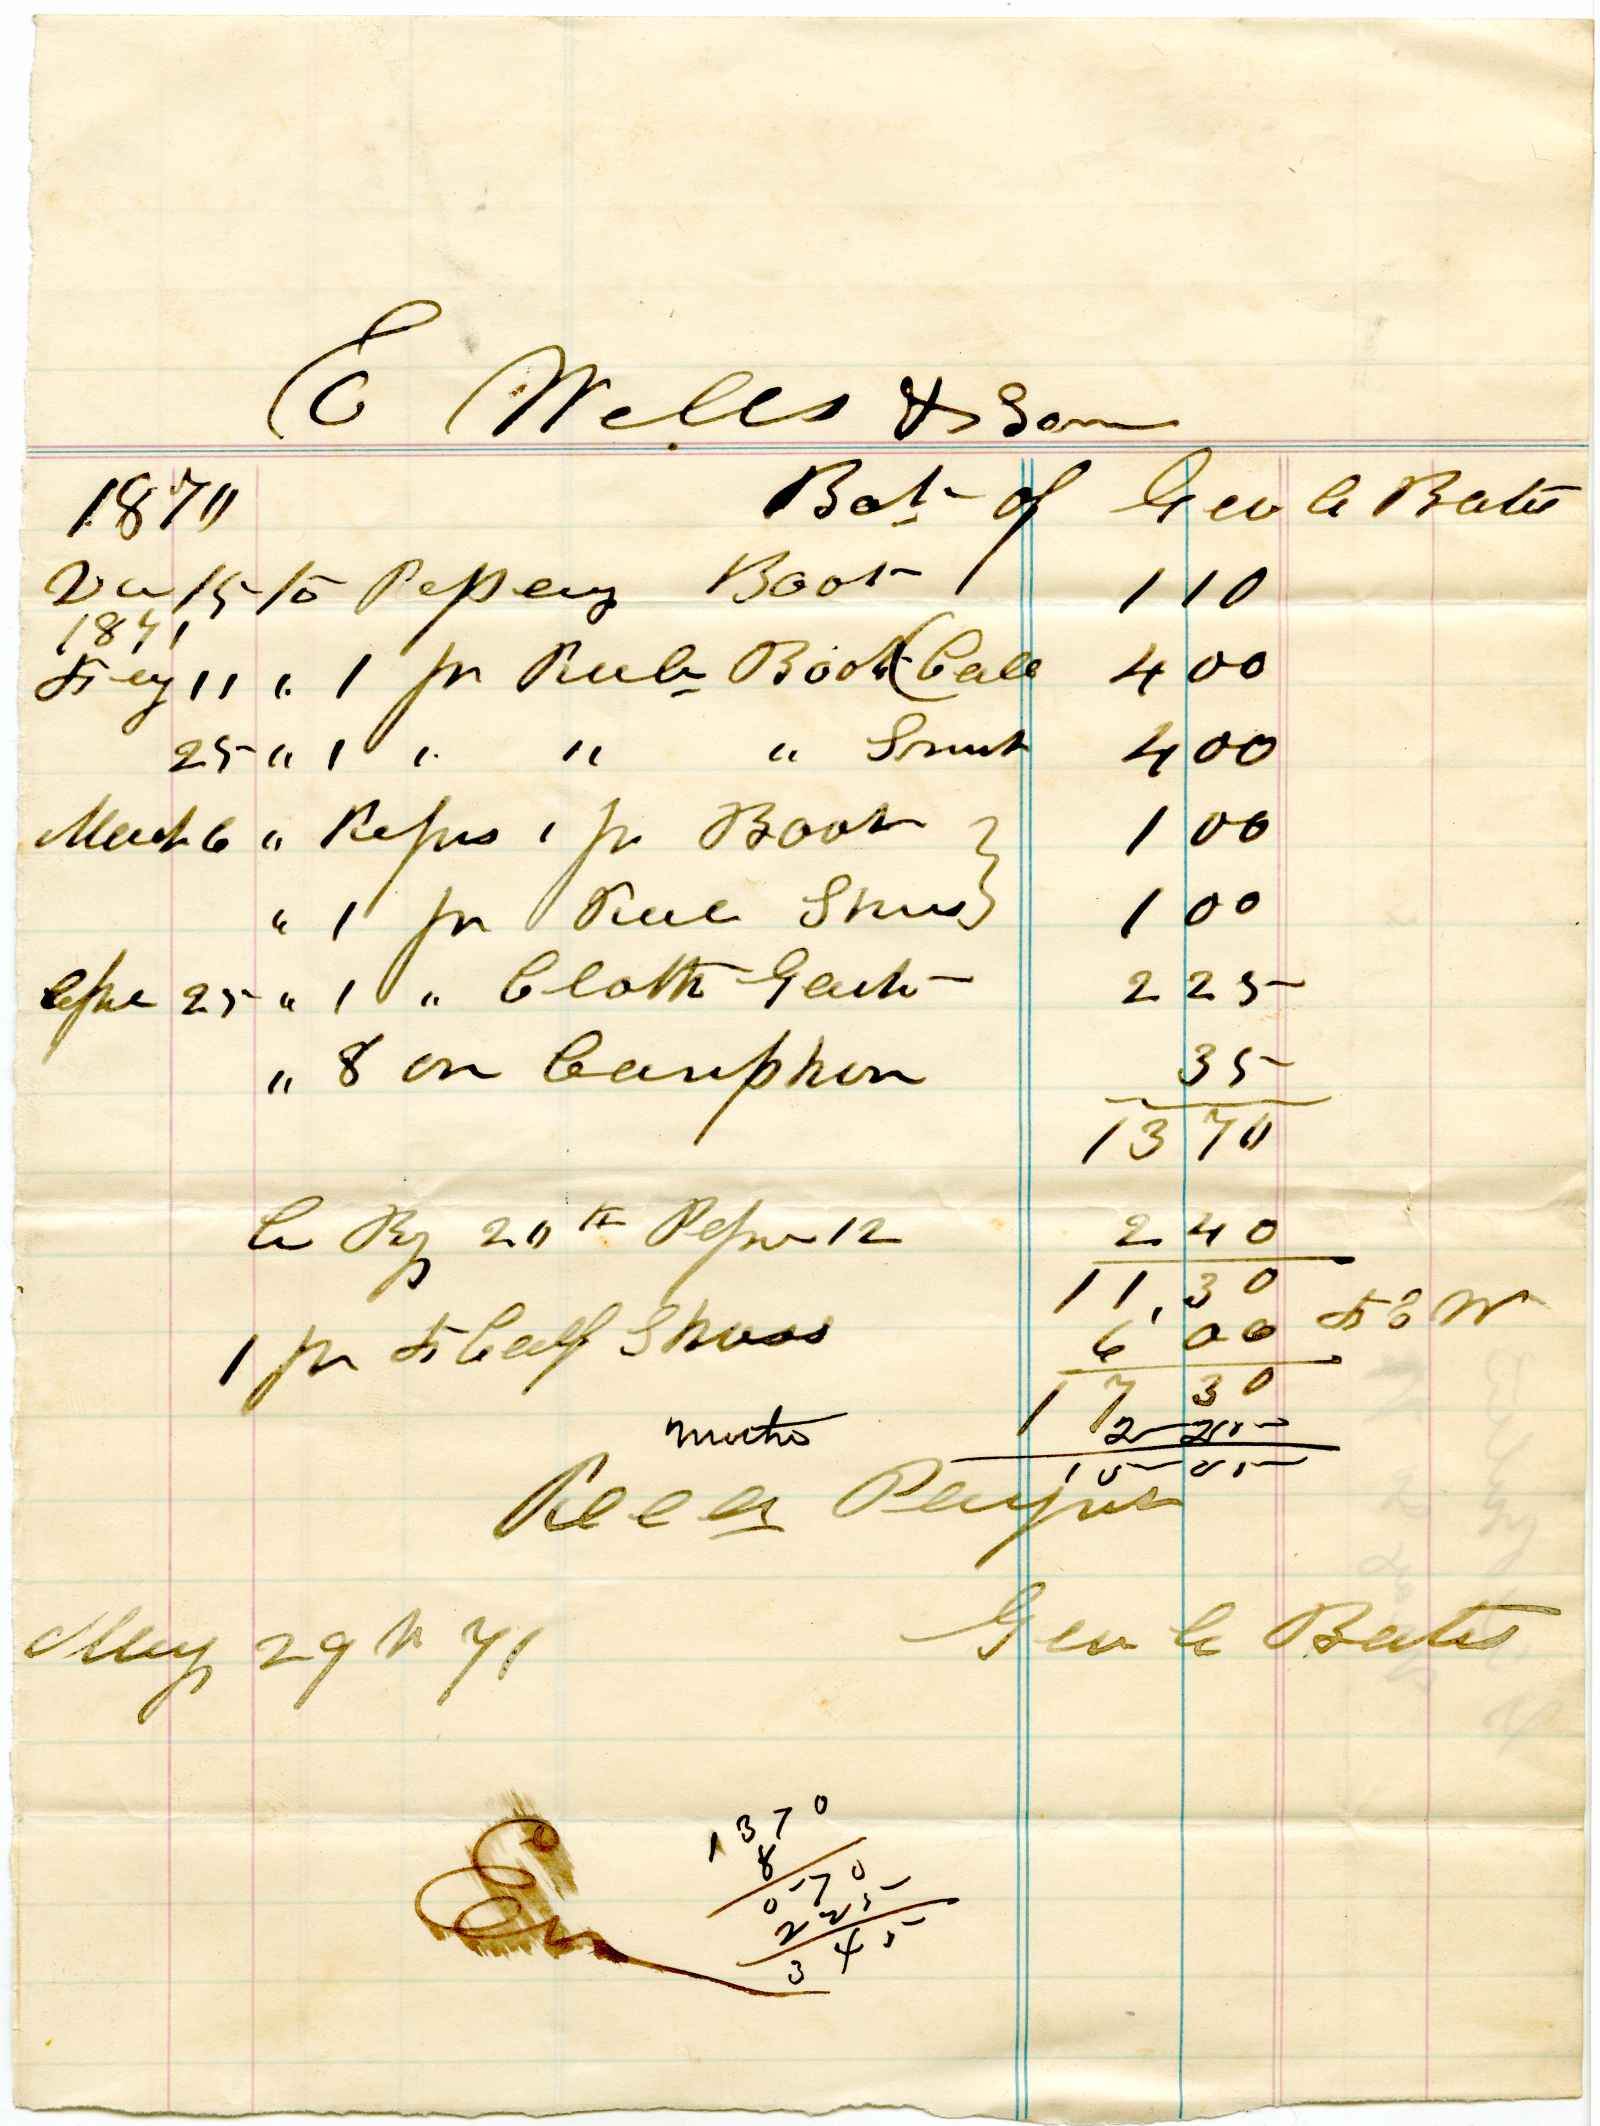 E Wells & Son
1870 Bot of Geo C Bates
Dec 15 To Reparing Boots 1 10
1871
Feby 11 " 1 pr Rub Boots (Call 4 00
25 " 1 " " " Smut 4 00
March 6 " Repas 1 pr Boots } 1 00
" 1 pr Rub Shues } 1 00
Apre 25 " 1 " Cloth Gaits 2 25
" 8 on Camphor 35
13 70
Cr By 20 lb Paper 12 2 40
11.30
1 pr F Calf Shoes 6 00 F E W
17 30
2 25
15 05
Recd Payment
May 29th 71 Geo C Bates
En
13 70
8
5 70
2 25
3 45